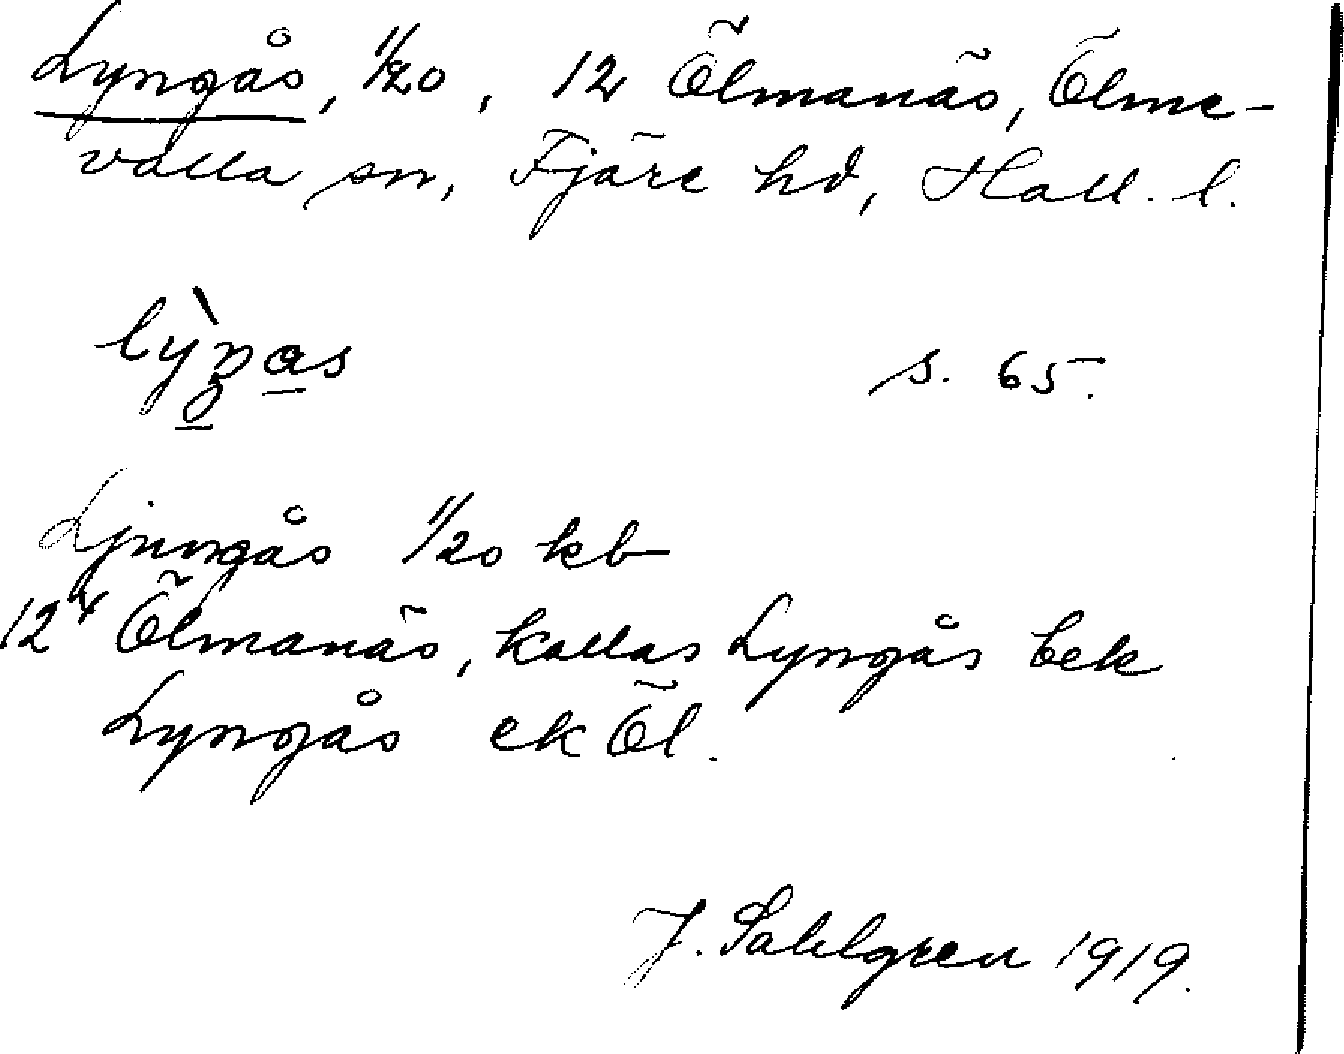 Lyngås, 1/20, 12 Ölmanäs, Ölme-
valla sn, Fjäre hd, Hall. l.
s. 65.
Ljungås 1/20 kb
12 Ölmanäs, kallas Lyngås bek
Lyngås ek Öl.
J. Sahlgren 1919.